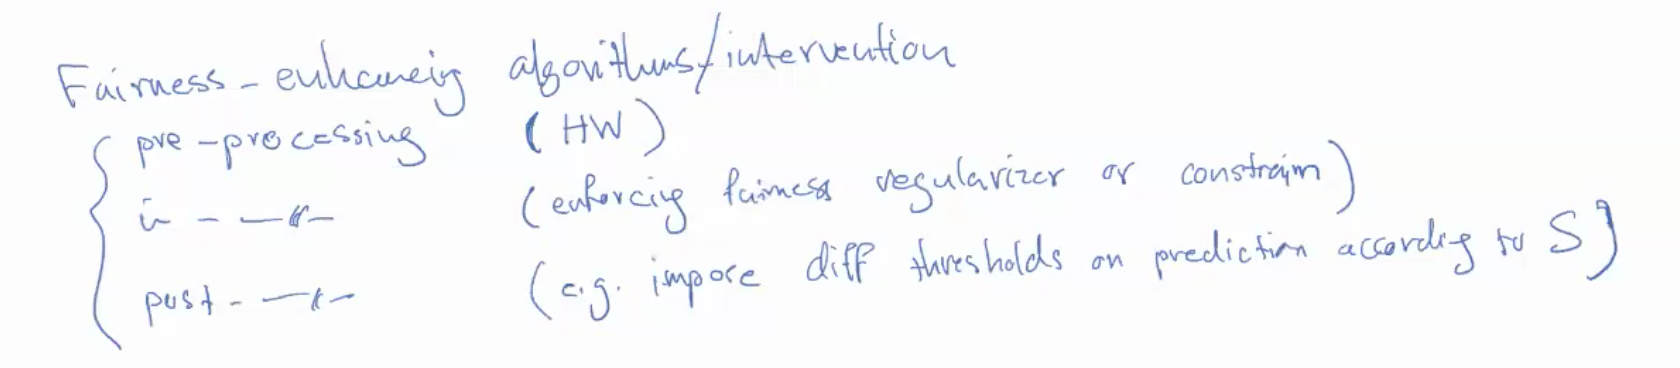 Fairness-enhancing algorithms/intervention
pre-processing (HW)
in - —〃— (enforcing fairness regularizer or constraint)
post - —〃— (e.g. impose diff thresholds on prediction according to S)